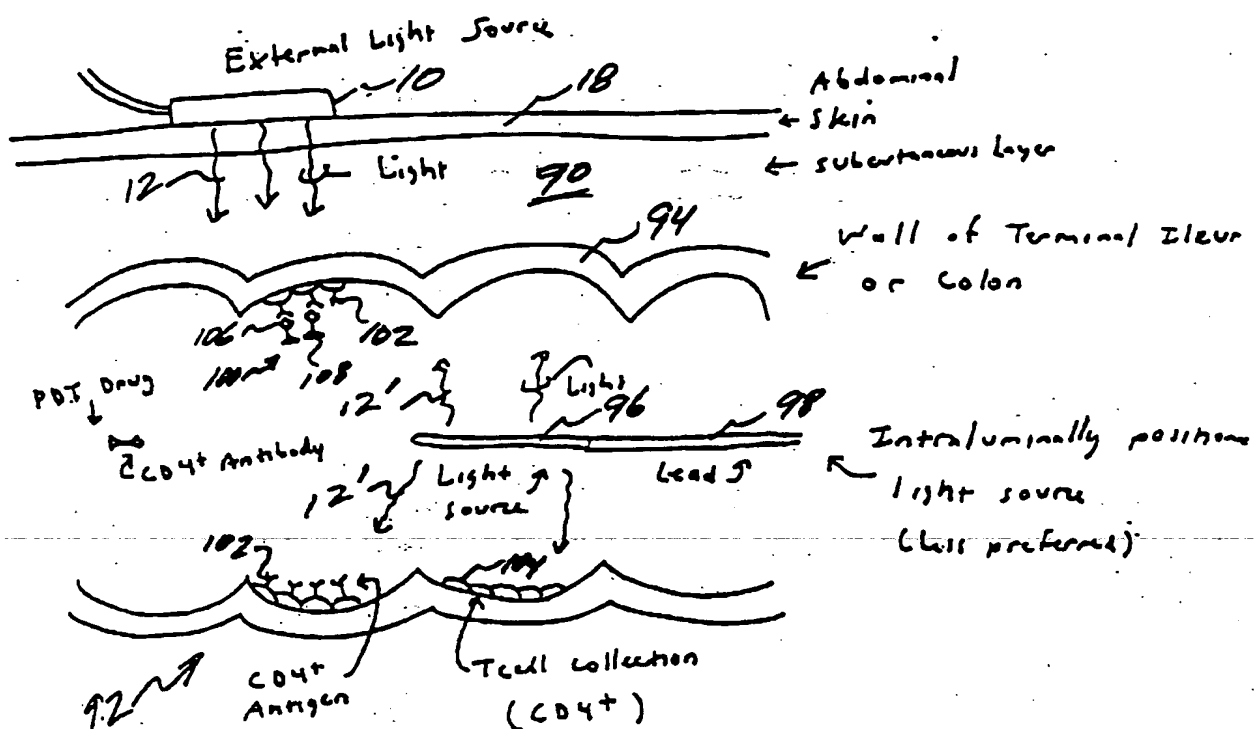 External Light Source
10
18
Abdominal
Skin
subcutaneous Layer
12
Light
90
94
Wall of Terminal Ileum
or Colon
106
102
100
108
PDT Drug
12'
Light
96
98
CD4+ Antibody
12'
Light
source
Lead
Intraluminally positione
light source
(less preferred)
102
104
92
CD4+
Antigen
Tcell collection
(CD4+)